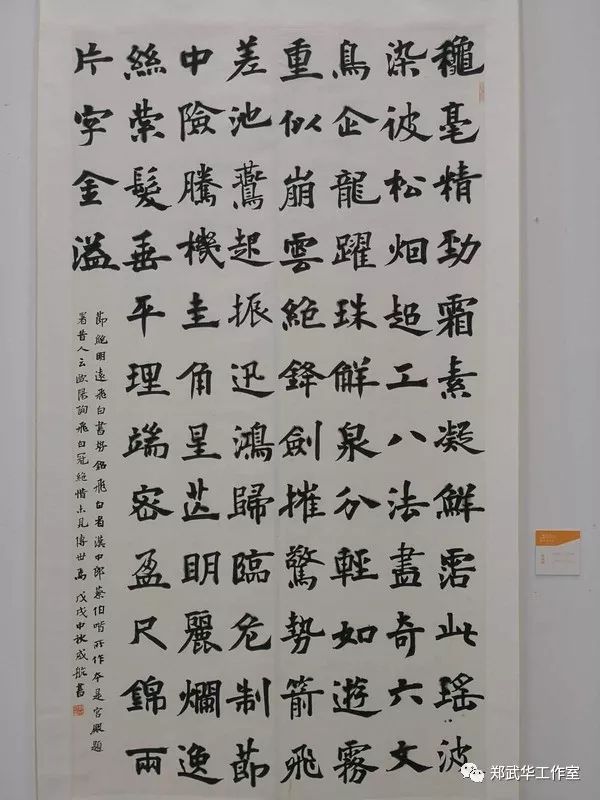 龝毫精勁霜素凝鮮霑此瑤波
染彼松烟超工八法盡奇六文
鳥企龍躍珠解泉分輕如遊霧
重似崩雲絕鋒劍摧驚勢箭飛
差池鷰起振迅鴻歸臨危制節
中險騰機圭角星芒明麗爛逸
絲縈髮垂平理端密盈尺錦兩
片字金溢
節鮑明遠飛白書勢銘飛白者漢中郎蔡伯喈所作本是宮殿題
署昔人云歐陽詢飛白冠絕惜未見傳世焉戊戌中秋成航書
郑武华工作室